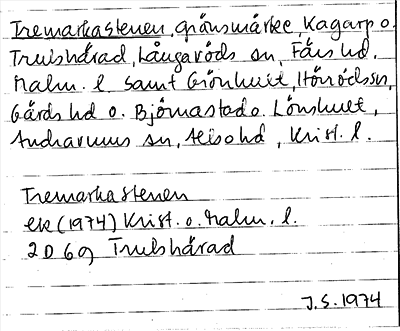 Tremarkastenen, gränsmärke, Kagarp o.
Trulshärad, Långaröds sn, Färs hd.
Malm. l. samt Grönhult, Hörrödssn,
Gärds hd o. Björnastad o. Lönshult,
Andrarums sn, Albo hd, Krist. l.
Tremarkastenen
ek (1974) Krist. o. Malm. l.
2 D 6 g Trulshärad
J.S. 1974